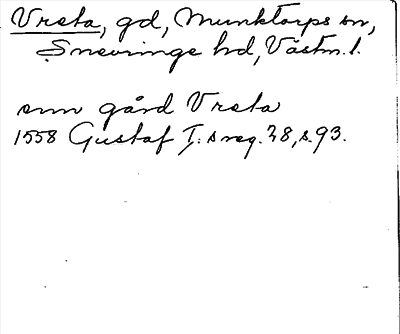 Vreta, gd, Munktorps sn,
Snevringe hd, Västm. l.
sum gård Vreta
1558 Gustaf I:s reg. 28, s. 93.